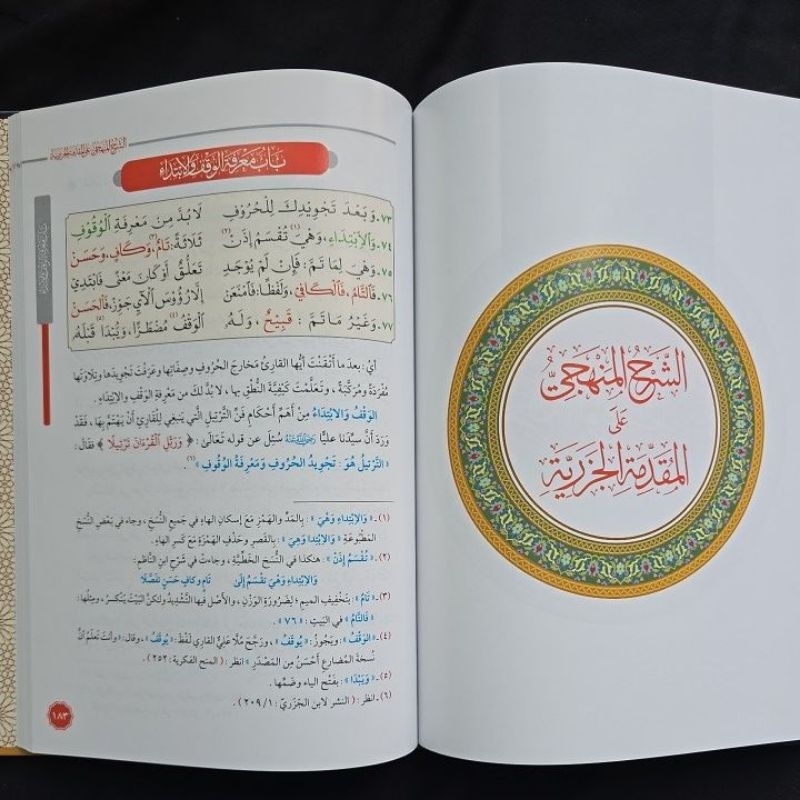 الشَّرْحُ المَنْهَجِيُّ
عَلَى
المُقَدِّمَةِ الجَزَرِيَّةِ
الشرح المنهجي على المقدمة الجزرية
بَابُ مَعْرِفَةِ الوَقْفِ وَالِابْتِدَاءِ
٧٣- وَبَعْدَ تَجْوِيدِكَ لِلْحُرُوفِ لَا بُدَّ مِنْ مَعْرِفَةِ الْوُقُوفِ
٧٤- وَالِابْتِدَاءِ، وَهْيَ(١) تُقْسَمُ إِذَنْ(٢) ثَلَاثَةً: تَامٌ(٣)، وَكَافٍ، وَحَسَنْ
٧٥- وَهْيَ لِمَا تَمَّ: فَإِنْ لَمْ يُوجَدِ تَعَلُّقٌ أَوْ كَانَ مَعْنًى فَابْتَدِئْ
٧٦- فَالتَّامُ، فَالْكَافِي، وَلَفْظًا: فَامْنَعَنْ إِلَّا رُؤُوسَ الْآيِ جَوِّزْ، فَالْحَسَنْ
٧٧- وَغَيْرُ مَا تَمَّ: قَبِيحٌ، وَلَهُ الْوَقْفُ(٤) مُضْطَرًّا، وَيُبْدَا(٥) قَبْلَهُ
أيْ: بعدما أتْقَنْتَ أيُّها القارئُ مَخارجَ الحُرُوفِ وصِفاتِها وعَرَفْتَ تَجْوِيدَها وتِلاوَتَها
مُفْرَدَةً ومُرَكَّبَةً، وتَعلَّمْتَ كَيْفِيَّةَ النُّطْقِ بها، لا بُدَّ لكَ من مَعْرِفَةِ الوَقْفِ والِابْتِداءِ.
الوَقْفُ وَالِابْتِدَاءُ مِنْ أهَمِّ أحْكامِ فَنِّ التَّرْتِيلِ الَّتي يَنبَغِي للقَارِئِ أنْ يَهْتَمَّ بِها، فَقَدْ
وَرَدَ أنَّ سيِّدَنا عليًّا سُئِلَ عن قوله تعالى: ﴿ وَرَتِّلِ ٱلْقُرْءَانَ تَرْتِيلًا ﴾ فقال:
« التَّرْتِيلُ هُوَ: تَجْوِيدُ الحُرُوفِ وَمَعْرِفَةُ الوُقُوفِ »(٦).
(١)- « وَالِابْتِدَاءِ وَهْيَ »: بالمَدِّ والهَمْزِ مَعَ إسكانِ الهاءِ في جَميعِ النُّسَخِ، وجاء في بَعْضِ النُّسَخِ
المَطْبُوعَةِ « وَالِابْتِدَا وَهِيَ »: بالقَصْرِ وحَذْفِ الهَمْزَةِ مَعَ كَسرِ الهاءِ.
(٢)- « تُقْسَمُ إِذَنْ »: هكذا في النُّسَخِ الخَطِّيَّةِ، وجاءتْ في شَرْحِ ابنِ النَّاظِم:
وَالِابْتِدَاءِ وَهْيَ تَقْسِمُ إِلَى تَامٍ وَكَافٍ حَسَنٍ تَفَصَّلَا
(٣)- « تَامٌ »: بتَخْفِيفِ المِيمِ؛ لِضَرُورَةِ الوَزْنِ، والأصْلُ فيها التَّشْدِيدُ ولكنَّ البَيْتَ يَنْكَسِرُ، ومِثلُها:
« فَالتَّامُ » في البَيْتِ: « ٧٦ ».
(٤)- « الوَقْفُ »: ويَجُوزُ: « يُوقَفُ »، ورَجَّحَ مُلَّا عَلِيٌّ القاري لَفْظَ: « يُوقَفُ »، وقال: «وأنتَ تَعْلَمُ أنَّ
نُسخَةَ المُضارِعِ أحْسَنُ مِنَ المَصْدَرِ» انظر: ( المنح الفكرية: ٢٥٢ ).
(٥)- « وَيُبْدَا »: بفَتْحِ الياء وضَمِّها.
(٦)- انظر: ( النشر لابن الجَزَريِّ: ١/ ٢٠٩ ).
١٨٣